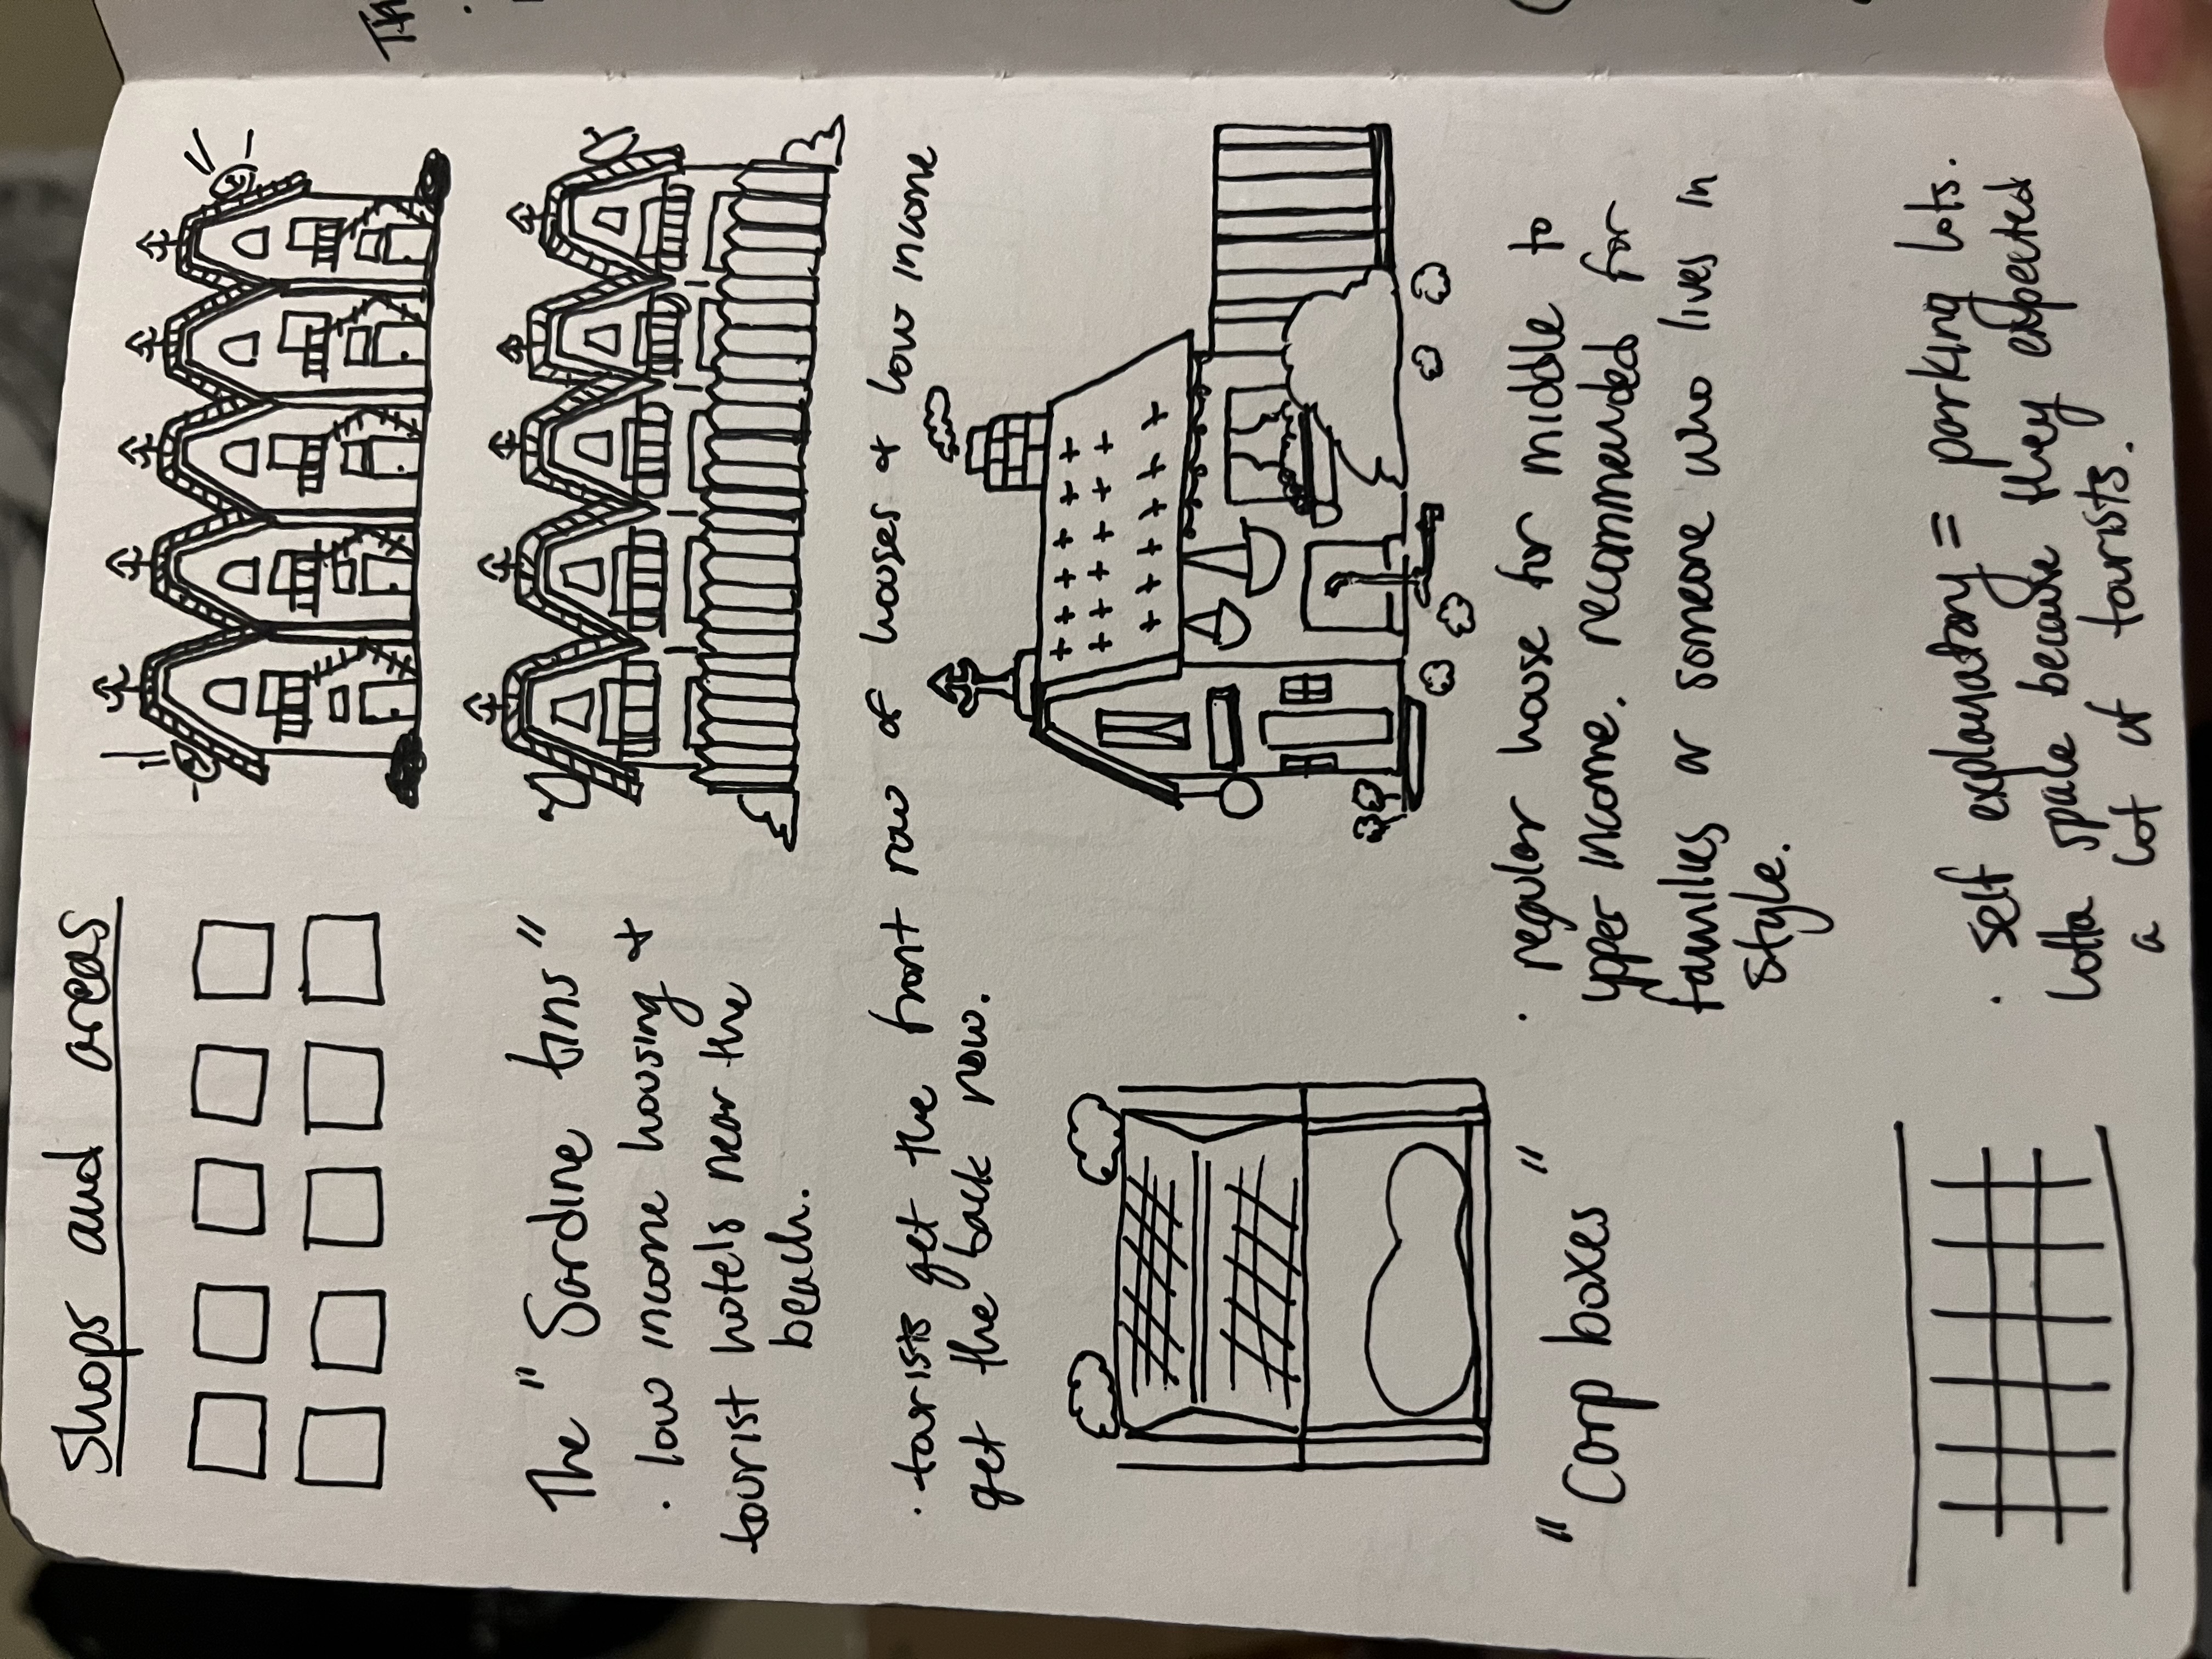 Shops and areas
The "Sardine tins"
· low income housing &
tourist hotels near the
beach.
· tourists get the front row of houses & low income
get the back row.
"Carp boxes"
· regular house for middle to
upper income. recommended for
families or someone who lives in
style.
· self explanatory = parking lots.
lotta space because they expected
a lot of tourists.